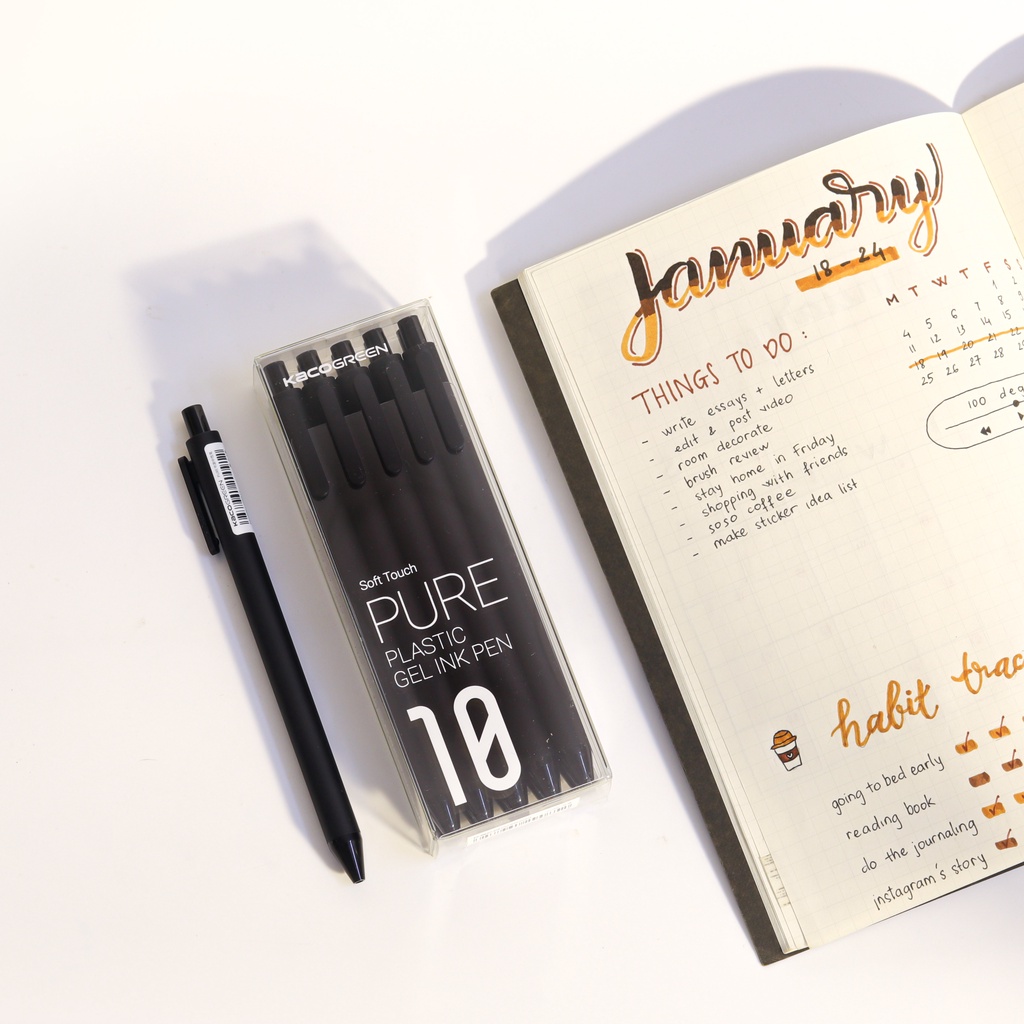 KACOGREEN
KACOGREEN
Soft Touch
PURE
PLASTIC
GEL INK PEN
10
January
18 - 24
THINGS TO DO :
- write essays + letters
- edit & post video
- room decorate
- brush review
- stay home in Friday
- shopping with friends
- soso coffee
- make sticker idea list
M T W T F S
1 2
4 5 6 7 8 9
11 12 13 14 15
18 19 20 21 22
25 26 27 28
100
habit
going to bed early
reading book
do the journaling
instagram's story